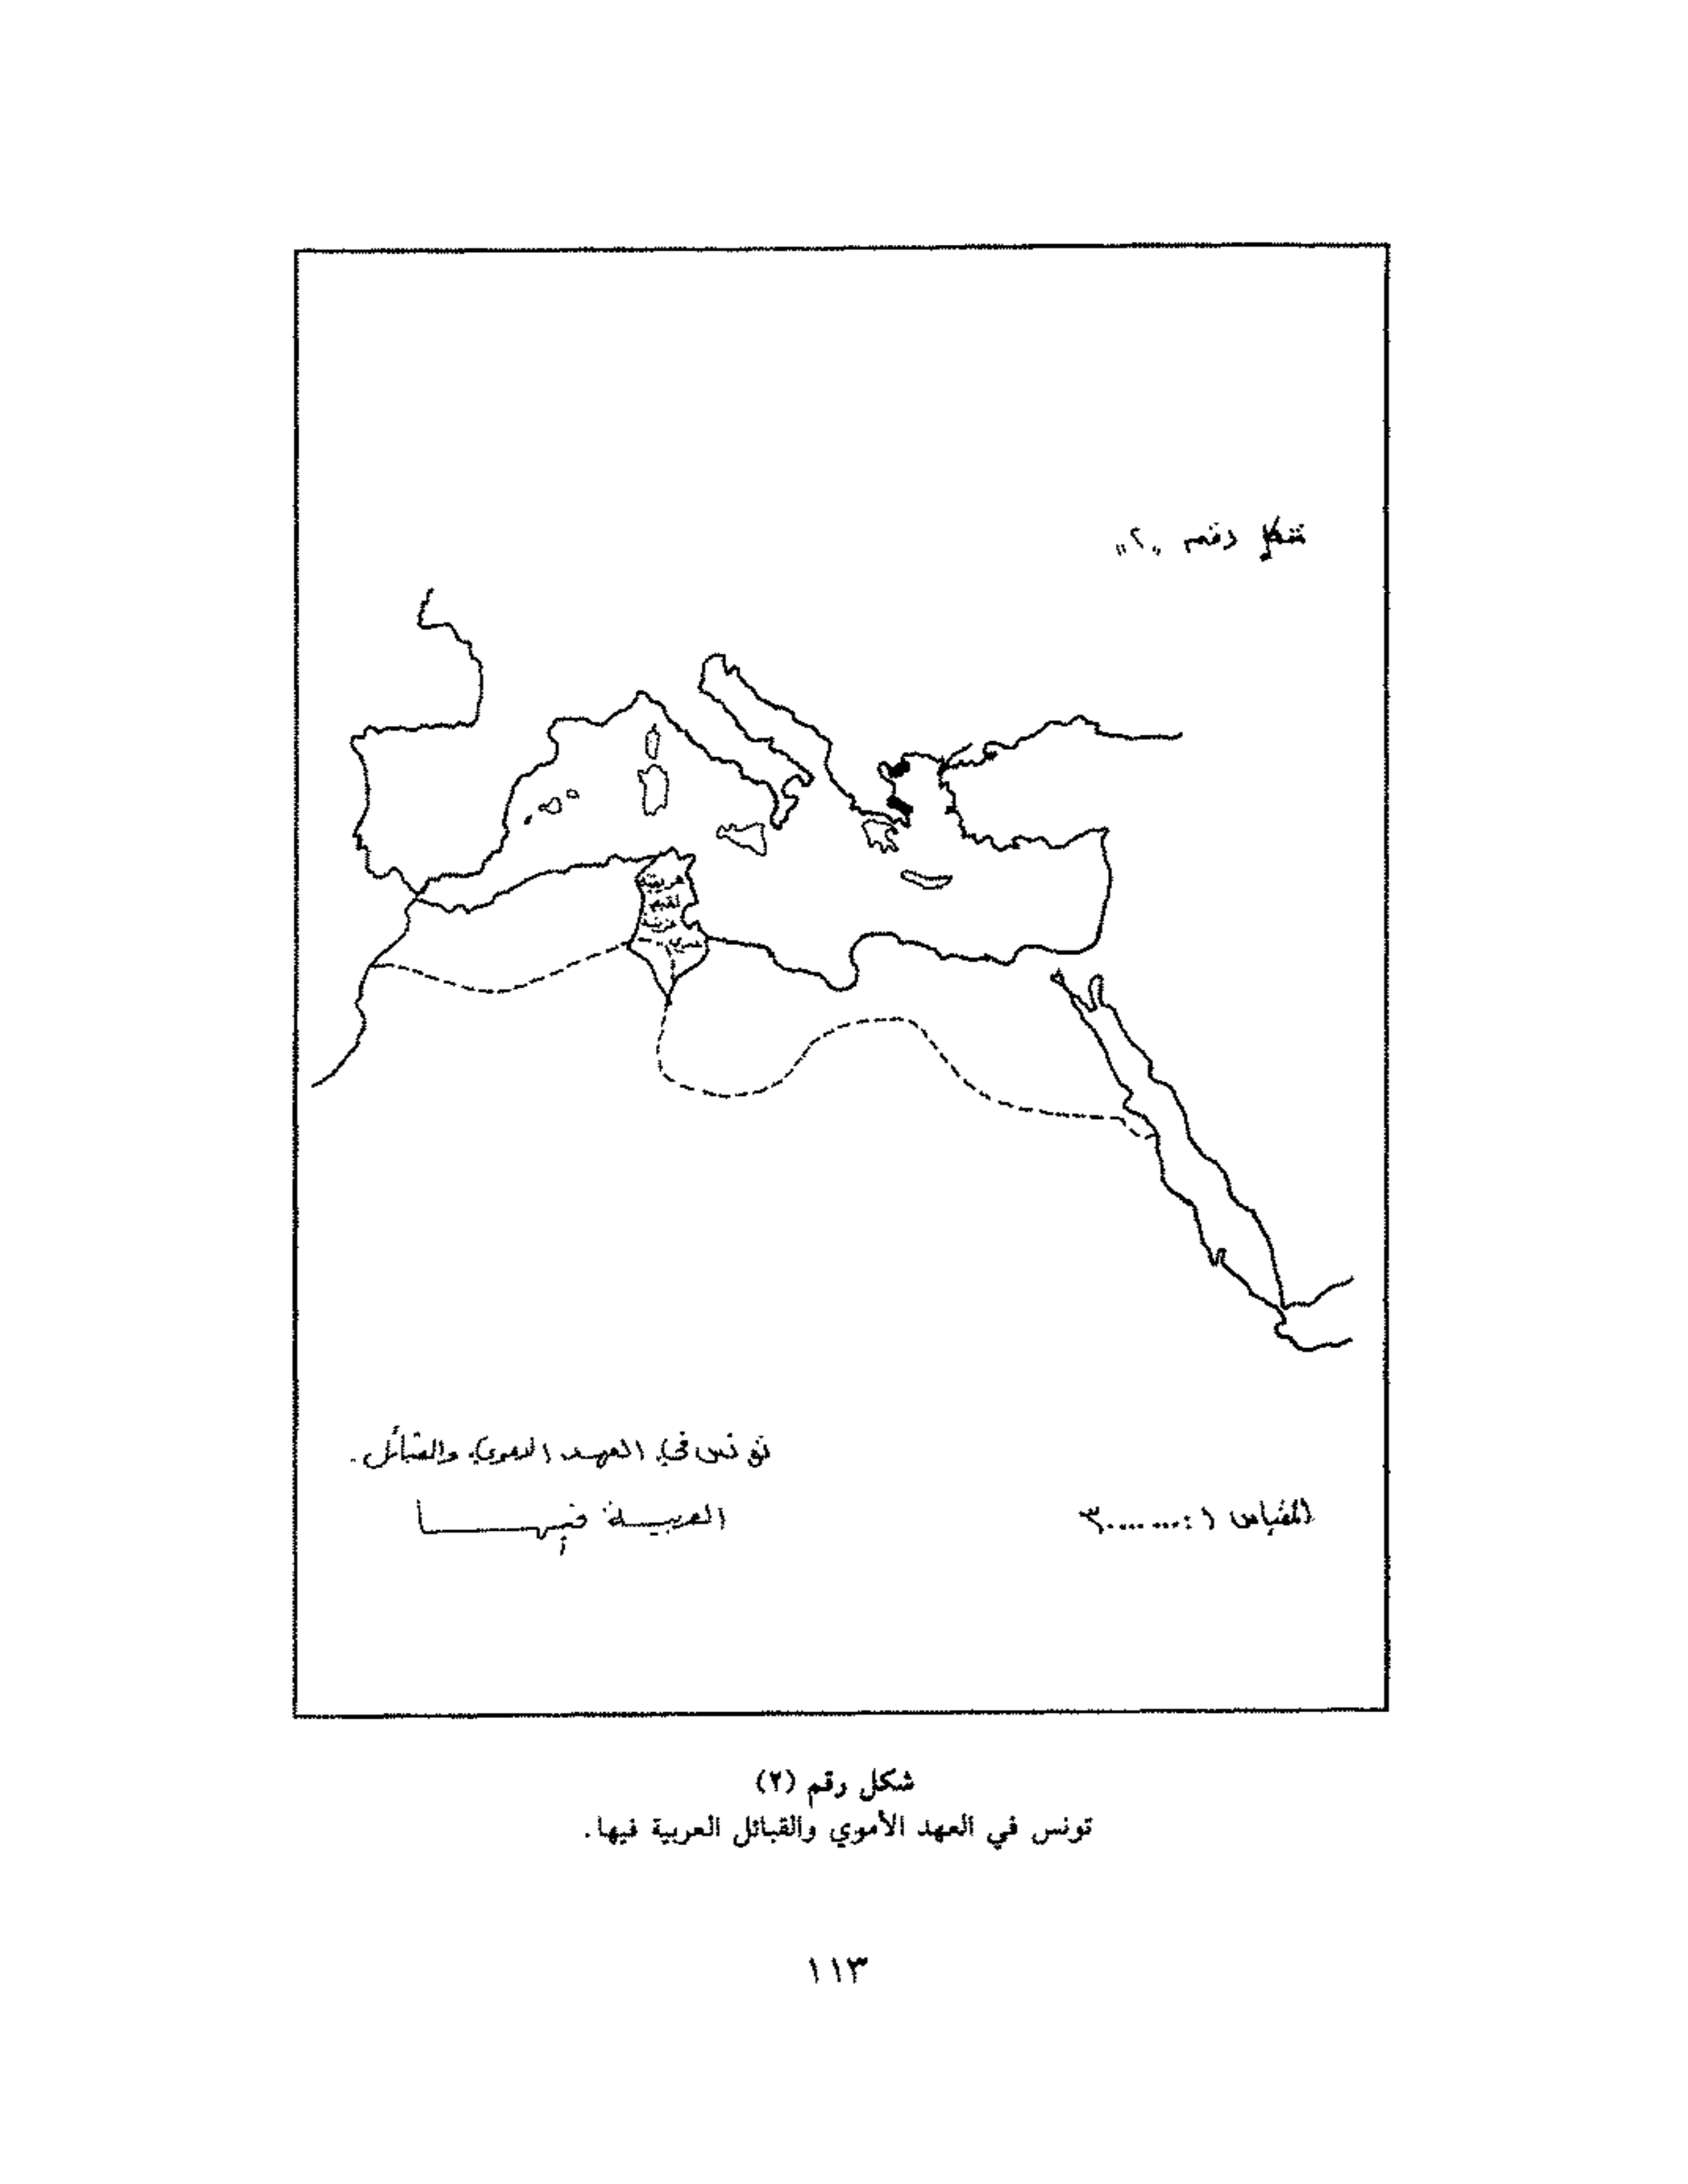 شكل رقم "٢"
تونس في العهد الأموي والقبائل
العربية فيها
المقياس ١ : ٣٠٠٠٠٠٠٠
شكل رقم (٢)
تونس في العهد الأموي والقبائل العربية فيها.
١١٣